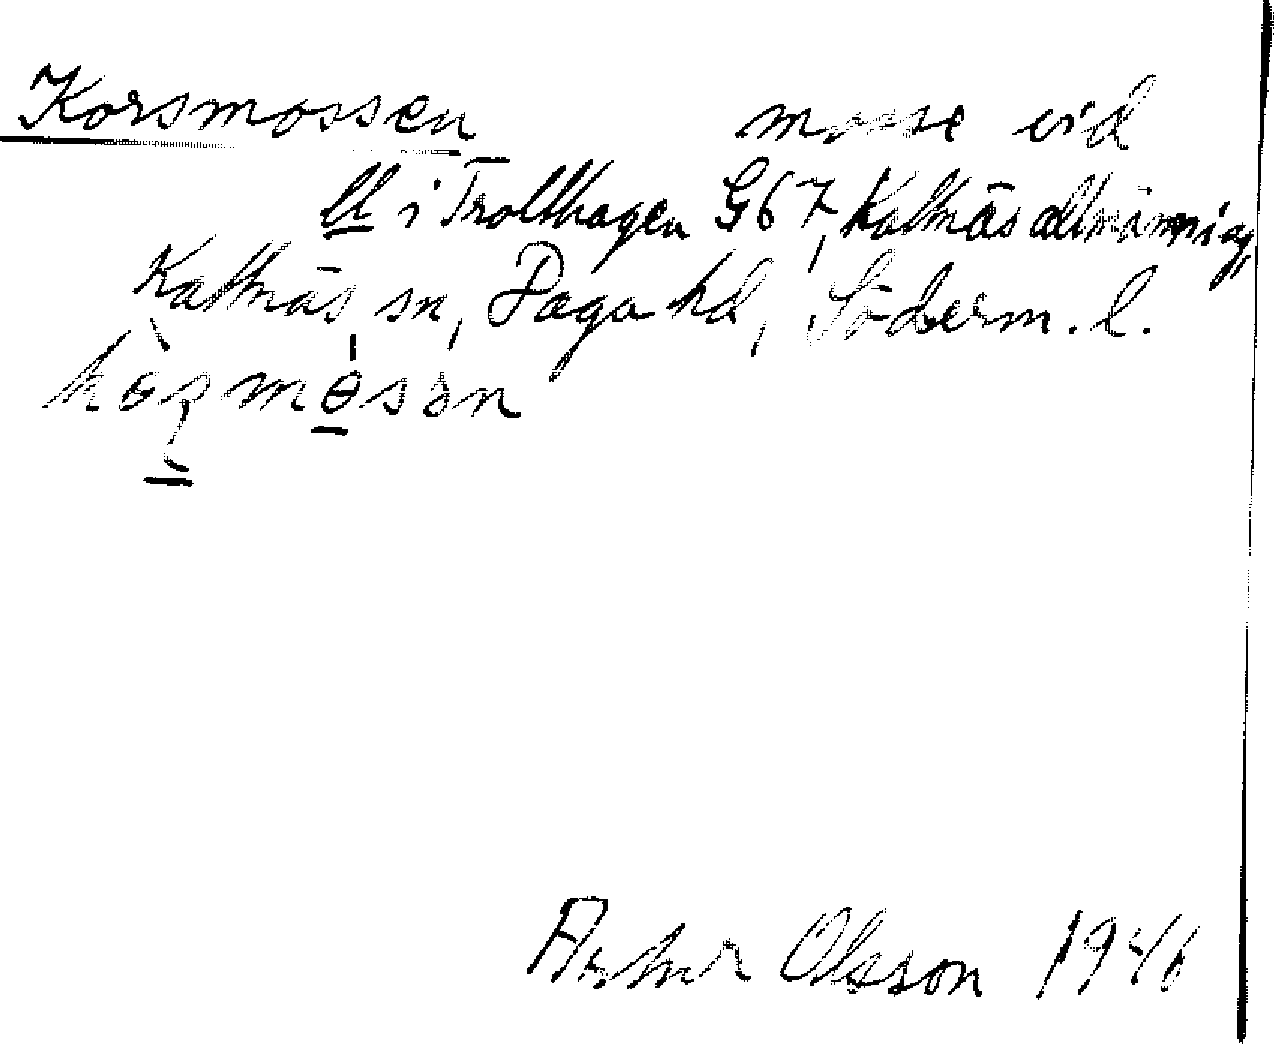 Korsmossen mosse vid
ll i Trollhagen G67, Kattnäs allmänning,
Kattnäs sn, Daga hd, Söderm. l.
Arthur Olsson 1946